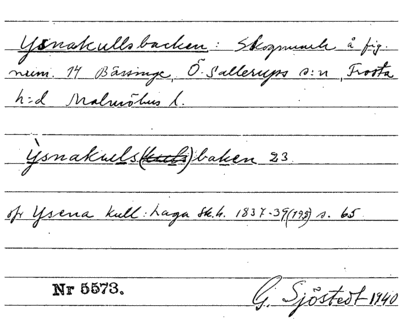 Ysnakullsbacken: Skogsmark å fig.
num. 14 Bässinge, Ö. Sallerups s:n, Frosta
h:d Malmöhus l.
Ysnakuls(kuls)baken 23.
cfr Ysena kull: Laga sk.h. 1837-39 (198) s. 65
Nr 5573.
G. Sjöstedt 1940